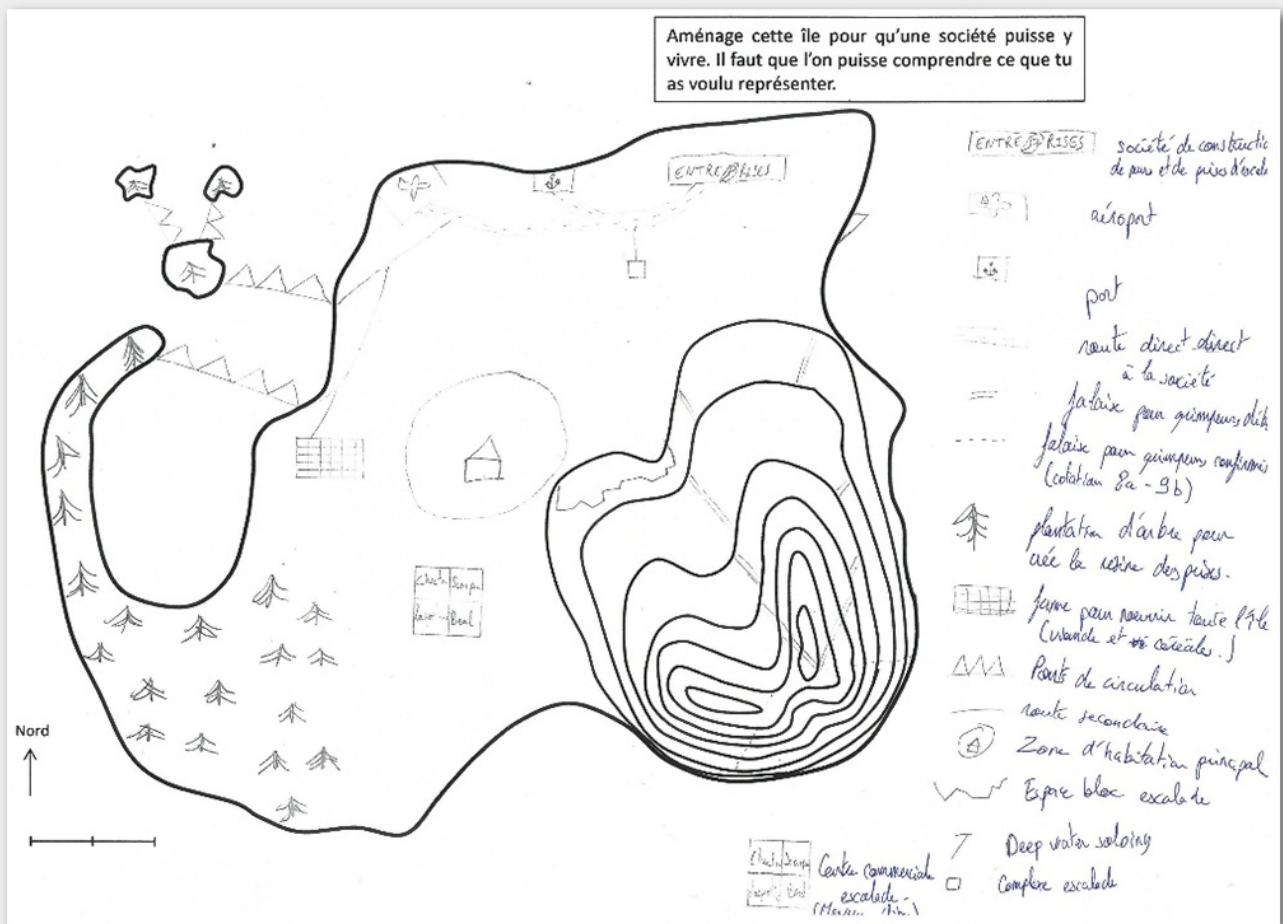 Aménage cette île pour qu'une société puisse y
vivre. Il faut que l'on puisse comprendre ce que tu
as voulu représenter.
ENTRE RISES
ENTRE RISES
société de constructio
de murs et de prises d'escala
aéroport
port
route direct direct
à la société
falaise pour grimpeurs déb
falaise pour grimpeurs confirmés
(cotation 8a - 9b)
plantation d'arbre pour
crée la résine des prises.
ferme pour nourrir toute l'île
(viande et céréales.)
Ponts de circulation
route secondaire
Zone d'habitation principal
Espace bloc escalade
Deep water soloing
Complexe escalade
Nord
Scarpa
Beal
Scarpa
Beal
Centre commerciale
escalade.